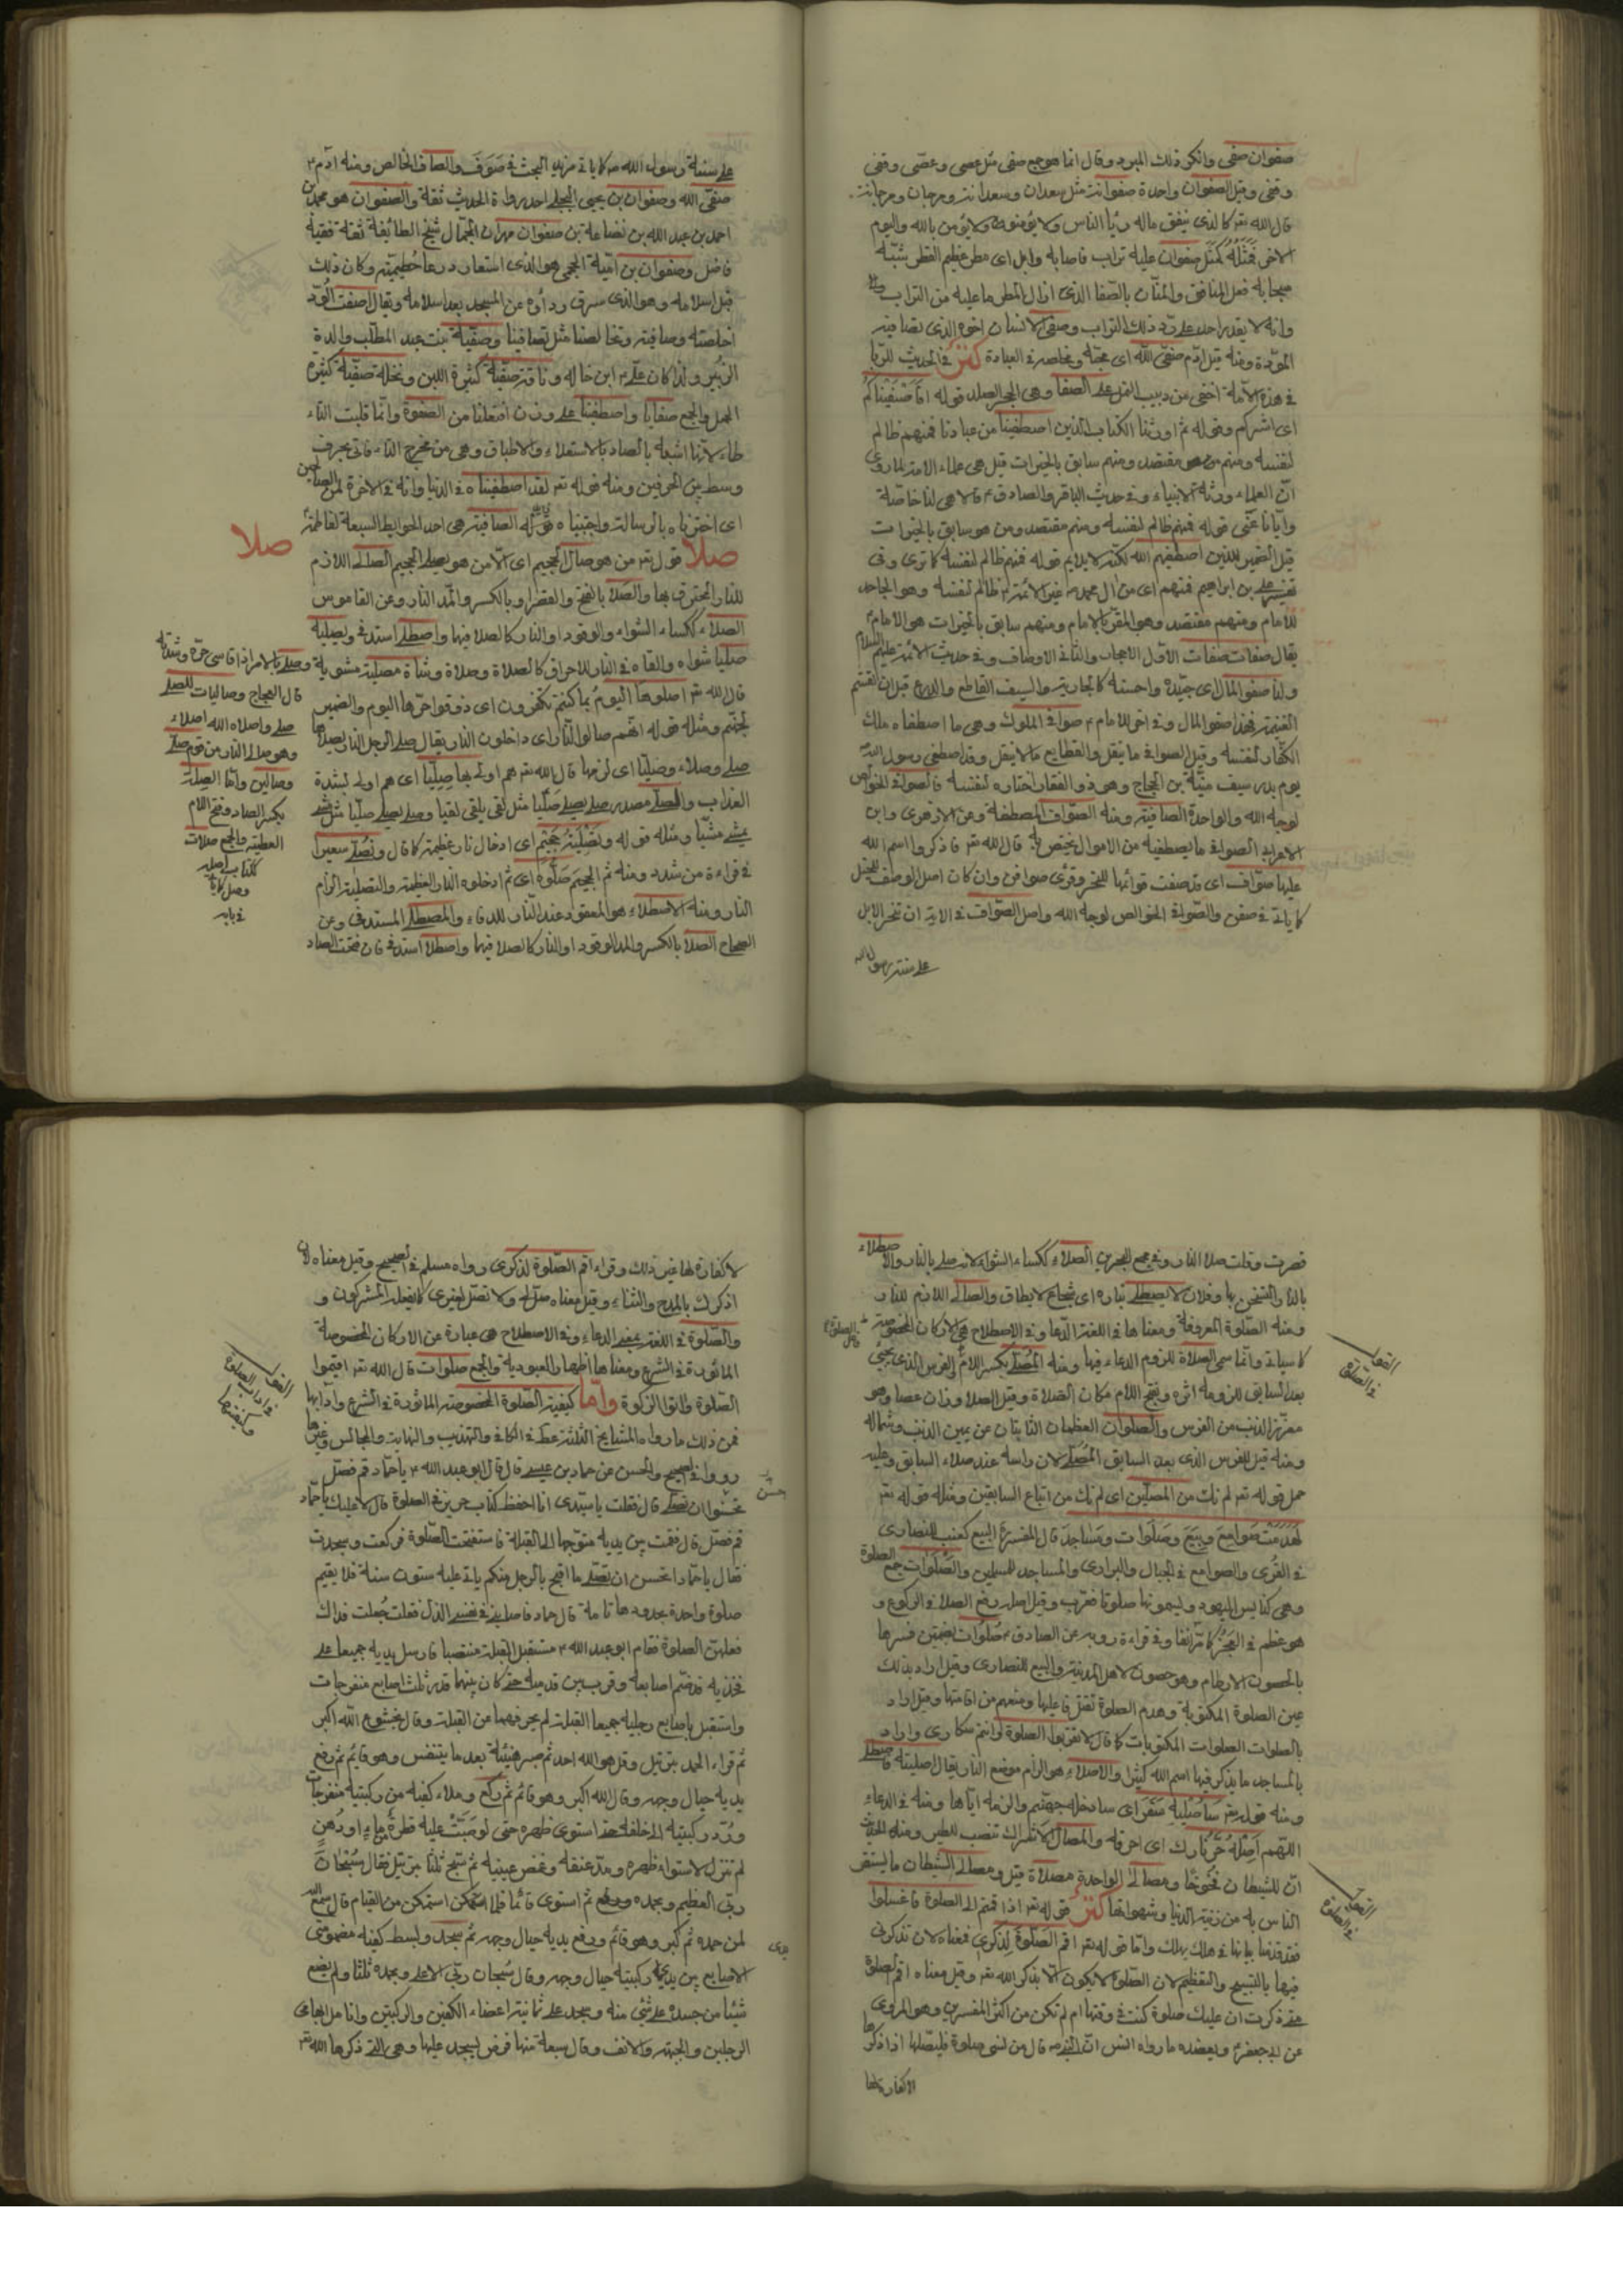 صفوان صفى وانكر ذلك المبرد وقال انما هو جمع صفى مثل عصى وعصى وقفى
وقفى وقيل الصفوان واحدة صفوانة مثل سعدان وسعدانة ومرجان ومرجانة
قال الله تعر كالذى ينفق ماله رئا الناس ولا يؤمن بالله واليوم
الاخر فَمَثَلُهُ كَمَثَلِ صفوان عليه تراب فاصابه وابل اى مطر عظيم القطر شبّه
سبحانه فعل المنافق والمنّان بالصّفا الذى ازال المطر ما عليه من التراب
وانه لا يقدر احد على رد ذلك التراب وصفى الانسان اخوه الذى يصافيه
المودة ومنه قيل ادم صفى الله اى محبّه ومخلصه فى العبادة كنز فى الحديث للرّيا
فى هذه الامّة اخفى من دبيب النمل على الصفا وهى الحجر الصلد قوله افَاَصْفَيٰكُم
اى اثركم وقوله ثم اورثنا الكتاب الذين اصطفينا من عبادنا فمنهم ظالم
لنفسه ومنهم مقتصد ومنهم سابق بالخيرات قيل هى علماء الامة لما روى
انّ العلماء ورثة الانبياء وفى حديث الباقر والصادق ع قالا هى لنا خاصّة
وايّانا عَنٰى قوله فمنهم ظالم لنفسه ومنهم مقتصد ومن هو سابق بالخيرات
قيل الضمير للذين اصطفيهم الله لكنّه لا يلايم قوله فمنهم ظالم لنفسه كا ترى وفى
تفسير على بن ابراهيم فمنهم اى من ال محمد ص غير الائمة ع ظالم لنفسه وهو الجاحد
للامام ومنهم مقتصد وهو المقرّ بالامام ومنهم سابق بالخيرات هو الامام ع
يقال صفات صفات الاول الاحجار والثانى الاوصاف وفى حديث الائمة عليهم السلام
ولنا صفو المال اى جيّده واحسنه كالجارية والسيف القاطع والدرع قبل ان تقسّم
الغنيمة فهذا صفو المال وفى اخر للامام ع صوافى الملوك وهى ما اصطفاه ملك
الكفّار لنفسه وقيل الصوافى ما ينقل والقطايع ما لا ينقل وقد اصطفى رسول الله
يوم بدر سيف منبّه بن الحجاج وهو ذو الفقار اختاره لنفسه فالصوافى الخوالص
لوجه الله والواحدة الصافية ومنه الصّوافى المصطفة وعن الازهرى وابن
الاعرابى الصوافى ما يصطفيه من الاموال يختص به قال الله تعر فاذكروا اسم الله
عليها صوّاف اى قد صفت قوائمها للنحر وقرئ صوافن وان كان اصل الوصف للخيل
كا ياتى فى صفن والصّوافى الخوالص لوجه الله واصل الصّواف فى الاية ان تنحر الابل
على سنة رسول الله
على سنة رسول الله ص كا ياتى مزيد البحث فى صَوَفَ والصاف الخالص ومنه ادم ع
صفىّ الله وصفوان بن يحيى البجلى احد رواة الحديث ثقة والصفوان هو محمد بن
احمد بن عبد الله بن قضاعة بن صفوان مهران الجمّال شيخ الطائفة ثقة فقيه
فاضل وصفوان بن اميّة الجمحى هو الذى استعار درعا حُطيميّة وكان ذلك
قبل اسلامه وهو الذى سرق رداؤه عن المسجد بعد اسلامه ويقال اصفت الوُدّ
اخلصته وصافيته وتخالصنا مثل تصافينا وصفيّة بنت عبد المطّلب والدة
الزبير ولذا كان على ع ابن خاله وناقة صفيّة كثيرة اللبن ونخلة صفيّة كثيرة
الحمل والجمع صفايا واصطفينا على وزن افتعلنا من الصفوة وانّما قلبت التاء
طاء لانّها اشبه بالصاد بالاستعلاء والاطباق وهى من مخرج التاء فاتى بحرف
وسط بين الحرفين ومنه قوله تعر لقد اصطفيناه فى الدنيا وانه فى الاخرة لمن الصالحين
اى اخترناه بالرسالة واجتبيناه قوله الصافية هى احد الحوايط السبعة لفاطمة ع
صلا
صلا قوله تعر من هو صال الجحيم اى الّا من هو يصلى الجحيم الصالى اللازم
للنار المحترق بها والصَلا بالفتح والقصر او بالكسر والمدّ النار وعن القاموس
الصلاء ككساء الشواء والوقود او النار كالصلا فيها واصطلى استدفى ويصليه
صليا شواه والقاه فى النار للاحراق كالصلاة وصلاة وشاة مصلية مشوية وصلى بالامر اذا قاسى حرّه وشدته
قال الله تعر اصلوها اليوم بما كنتم تكفرون اى ذوقوا حرّها اليوم والضمير
لجهنّم ومثله قوله انهم صالوا النار اى داخلون النار يقال صلى الرجل النار يصلاها
صلى وصلاء وصليّا اى لزمها قال الله تعر هم اولى بها صِلِيّا اى هم اولى لشدة
العذاب والصلى مصدر صلى يصلى صَلّيا مثل لقى يلقى لقيا وصلى يصلى صليّا مثل مشى
يمشى مشيّا ومثله قوله وتَصْلِيَةُ جَحِيم اى ادخال نار عظيمة كا قال ونُصْلى سعيرا
فى قراءة من شدد ومنه ثم الجحيم صَلّوه اى ثم ادخلوه النار العظيمة والتصلية الزام
النار ومنه الاصطلاء هو القعود عند النار للدفاء والمصطلى المستدفى وعن
الصحاح الصلا بالكسر والمد الوقود او النار كالصلا فيها واصطلا استدفى فان فتحت الصاد
قال العجاج وصاليات للصلى
صلى واصلاه الله اصلاء
وهو صلى النار من قوم صلى
وصالين وامّا الصِلَة
بكسر الصاد وفتح اللام
العطية والجمع صلات
كلتاب اصله
وصل كا ياتى
فى بابه
قصرت وقلت صلا النار وفى مجمع البحرين الصلاء ككساء الشواء لانه صلى بالنار والاصطلاء
بالنار التسخن بها وفلان لا يصطلى بناره اى شجاع لا يطاق والصالى اللازم للنار
ومنه الصّلوة المعروفة ومعناها فى اللغة الدّعا وفى الاصطلاح هى الاركان المخصوصة
كا سياتى وانّما سمى الصلاة للزوم الدعاء فيها ومنه المُصَلّى بكسر اللام الفرس الذى يجئ
بعد السابق للزومه اثره وبفتح اللام مكان الصّلاة وقيل الصلا وزان عصا وهو
مغرز الذنب من الفرس والصلوان العظمان الثابتان عن يمين الذنب وشماله
ومنه قيل للفرس الذى بعد السابق المُصَلّى لان راسه عند صلاء السابق وعليه
حمل قوله تعر لم نك من المصلّين اى لم نك من اتباع السابقين ومثله قوله تعر
لَهُدّمَتْ صَوامِعُ وبِيَعٌ وصَلَوات ومَساجدَ قال المفسر البيع كعنب للنصارى
فى القُرى والصوامع فى الجبال والبرارى والمساجد للمسلمين والصّلوات جمع الصلوة
وهى كنايس اليهود ويسمونها صلوتا فعرب وقيل اصله رفع الصلا فى الركوع و
هو عظم فى العَجُز كا مرّ انفا وفى قراءة رويه عن الصادق ع صُلُوات بضمّتين فسرها
بالحصون الاطام وهو حصون لاهل المدينة والبيع للنصارى وقيل اراد بذلك
عين الصلوة المكتوبة وهدم الصلوة بقتل فاعليها ومنعهم من اقامتها وقيل اراد
بالصلوات الصلوات المكتوبات كا قال لا تقربوا الصلوة وانتم سكارى واراد
بالمساجد ما يذكر فيها اسم الله كثيرا والاصلاء هو الزام موضع النار يقال اصليته فاصطلى
ومنه قوله تعر سَاُصْلِيهِ سَقَرَ اى سادخله جهنّم والزمه ايّاها ومنه فى الدعاء
اللهّم اَصْلِهْ حَرَّ نارك اى احرقه والمصالى الاشراك تنصب للطير ومنه الحديث
انّ للشيطان فخوخا ومصالى الواحدة مصلاة قيل ومصالى الشيطان ما يستفز
الناس به من زينة الدنيا وشهواتها كنز قوله تعر اذا قمتم الى الصلوة فاغسلوا
فقد قدمنا بيانها فى هلك بهلك وامّا قوله تعر اقم الصَّلٰوةَ لِذكرى فمعناه لان تذكرنى
فيها بالتسبيح والتعظيم لان الصّلوة لا يكون الّا بذكر الله تعر وقيل معناه اقم الصلوة
متى ذكرت ان عليك صلوة كنت فى وقتها ام لم تكن من اكثر المفسرين وهو المروى
عن ابى جعفر ع ويعضده ما رواه انس انّ النبى ص قال من نسى صلوة فليصلها اذا ذكرها
لا كفارة لها
القول
فى الصلوة
لا كفارة لها غير ذلك وقراء اقم الصّلوة لذكرى رواه مسلم فى الصحيح وقيل معناه لان
اذكرك بالمدح والثناء وقيل معناه صل لى ولا تصل لغيرى كا يفعله المشركون و
والصّلوة فى اللغة بمعنى الدعاء وفى الاصطلاح هى عبارة عن الاركان المخصوصة
الماثورة فى الشرع ومعناها اظهار العبودية والجمع صلوات قال الله تعر اقيموا
الصّلوة واتوا الزكوة وامّا كيفية الصّلوة المخصوصة الماثورة فى الشرع وآدابها
فمن ذلك ما رواه المشايخ الثلثة عط فى الكافى والتهذيب والنهاية والمجالس وغيرها
رووا فى الصحيح والحسن عن حماد بن عيسى قال قال ابو عبد الله ع يا حمّاد قم فصل
تحسن ان تصلى قال فقلت يا سيّدى انا احفظ كتاب حريز فى الصلوة قال لا عليك يا حمّاد
قم فصّل قال فقمت بين يديه متوجّها الى القبلة فاستفتحت الصّلوة فركعت وسجدت
فقال يا حمّاد لا تحسن ان تصلى ما اقبح بالرجل منكم ياتى عليه ستون سنة فلا يقيم
صلوة واحدة بحدودها تامة قال حماد فاصابنى فى نفسى الذل فقلت جُعلت فداك
فعلمنى الصلوة فقام ابو عبد الله ع مستقبل القبلة منتصبا فارسل يديه جميعا على
فخذيه قد ضّم اصابعه وقرب بين قدميه حتى كان بينهما قدر ثلث اصابع منفرجات
واستقبل باصابع رجليه جميعا القبلة لم يحرفهما عن القبلة وقال بخشوع الله اكبر
ثم قراء الحمد بترتيل وقل هو الله احد ثم صبر هنيئة بعد ما يتنفس وهو قائم ثم رفع
يديه حيال وجهه وقال الله اكبر وهو قائم ثم ركع وملاء كفيه من ركبتيه منفرجات
وردّ ركبتيه الى خلفه حتى استوى ظهره حتى لو صُبّتْ عليه قطرة ماء او دُهنٍ
لم تنزل لاستواء ظهره ومد عنقه وغمض عينيه ثم سبّح ثلثا بترتيل فقال سُبْحٰانَ
ربّى العظيم وبحمده ورفع ثم استوى قائما فلما استمكن من القيام قال سمع الله
لمن حمده ثم كبر وهو قائم ورفع يديه حيال وجهه ثم سجد وبسط كفيه مضمومتى
الاصابع بين يدى ركبتيه حيال وجهه وقال سُبحان ربّى الاعلى وبحمده ثلثا ولم يضع
شيئا من جسده على شئ منه وسجد على ثمانية اعضاء الكفين والركبتين وانامل ابهامى
الرجلين والجبهة والانف وقال سبعة منها فرض يسجد عليها وهى التى ذكرها الله تعر
القول
فى اداب الصلوة
وكيفيتها